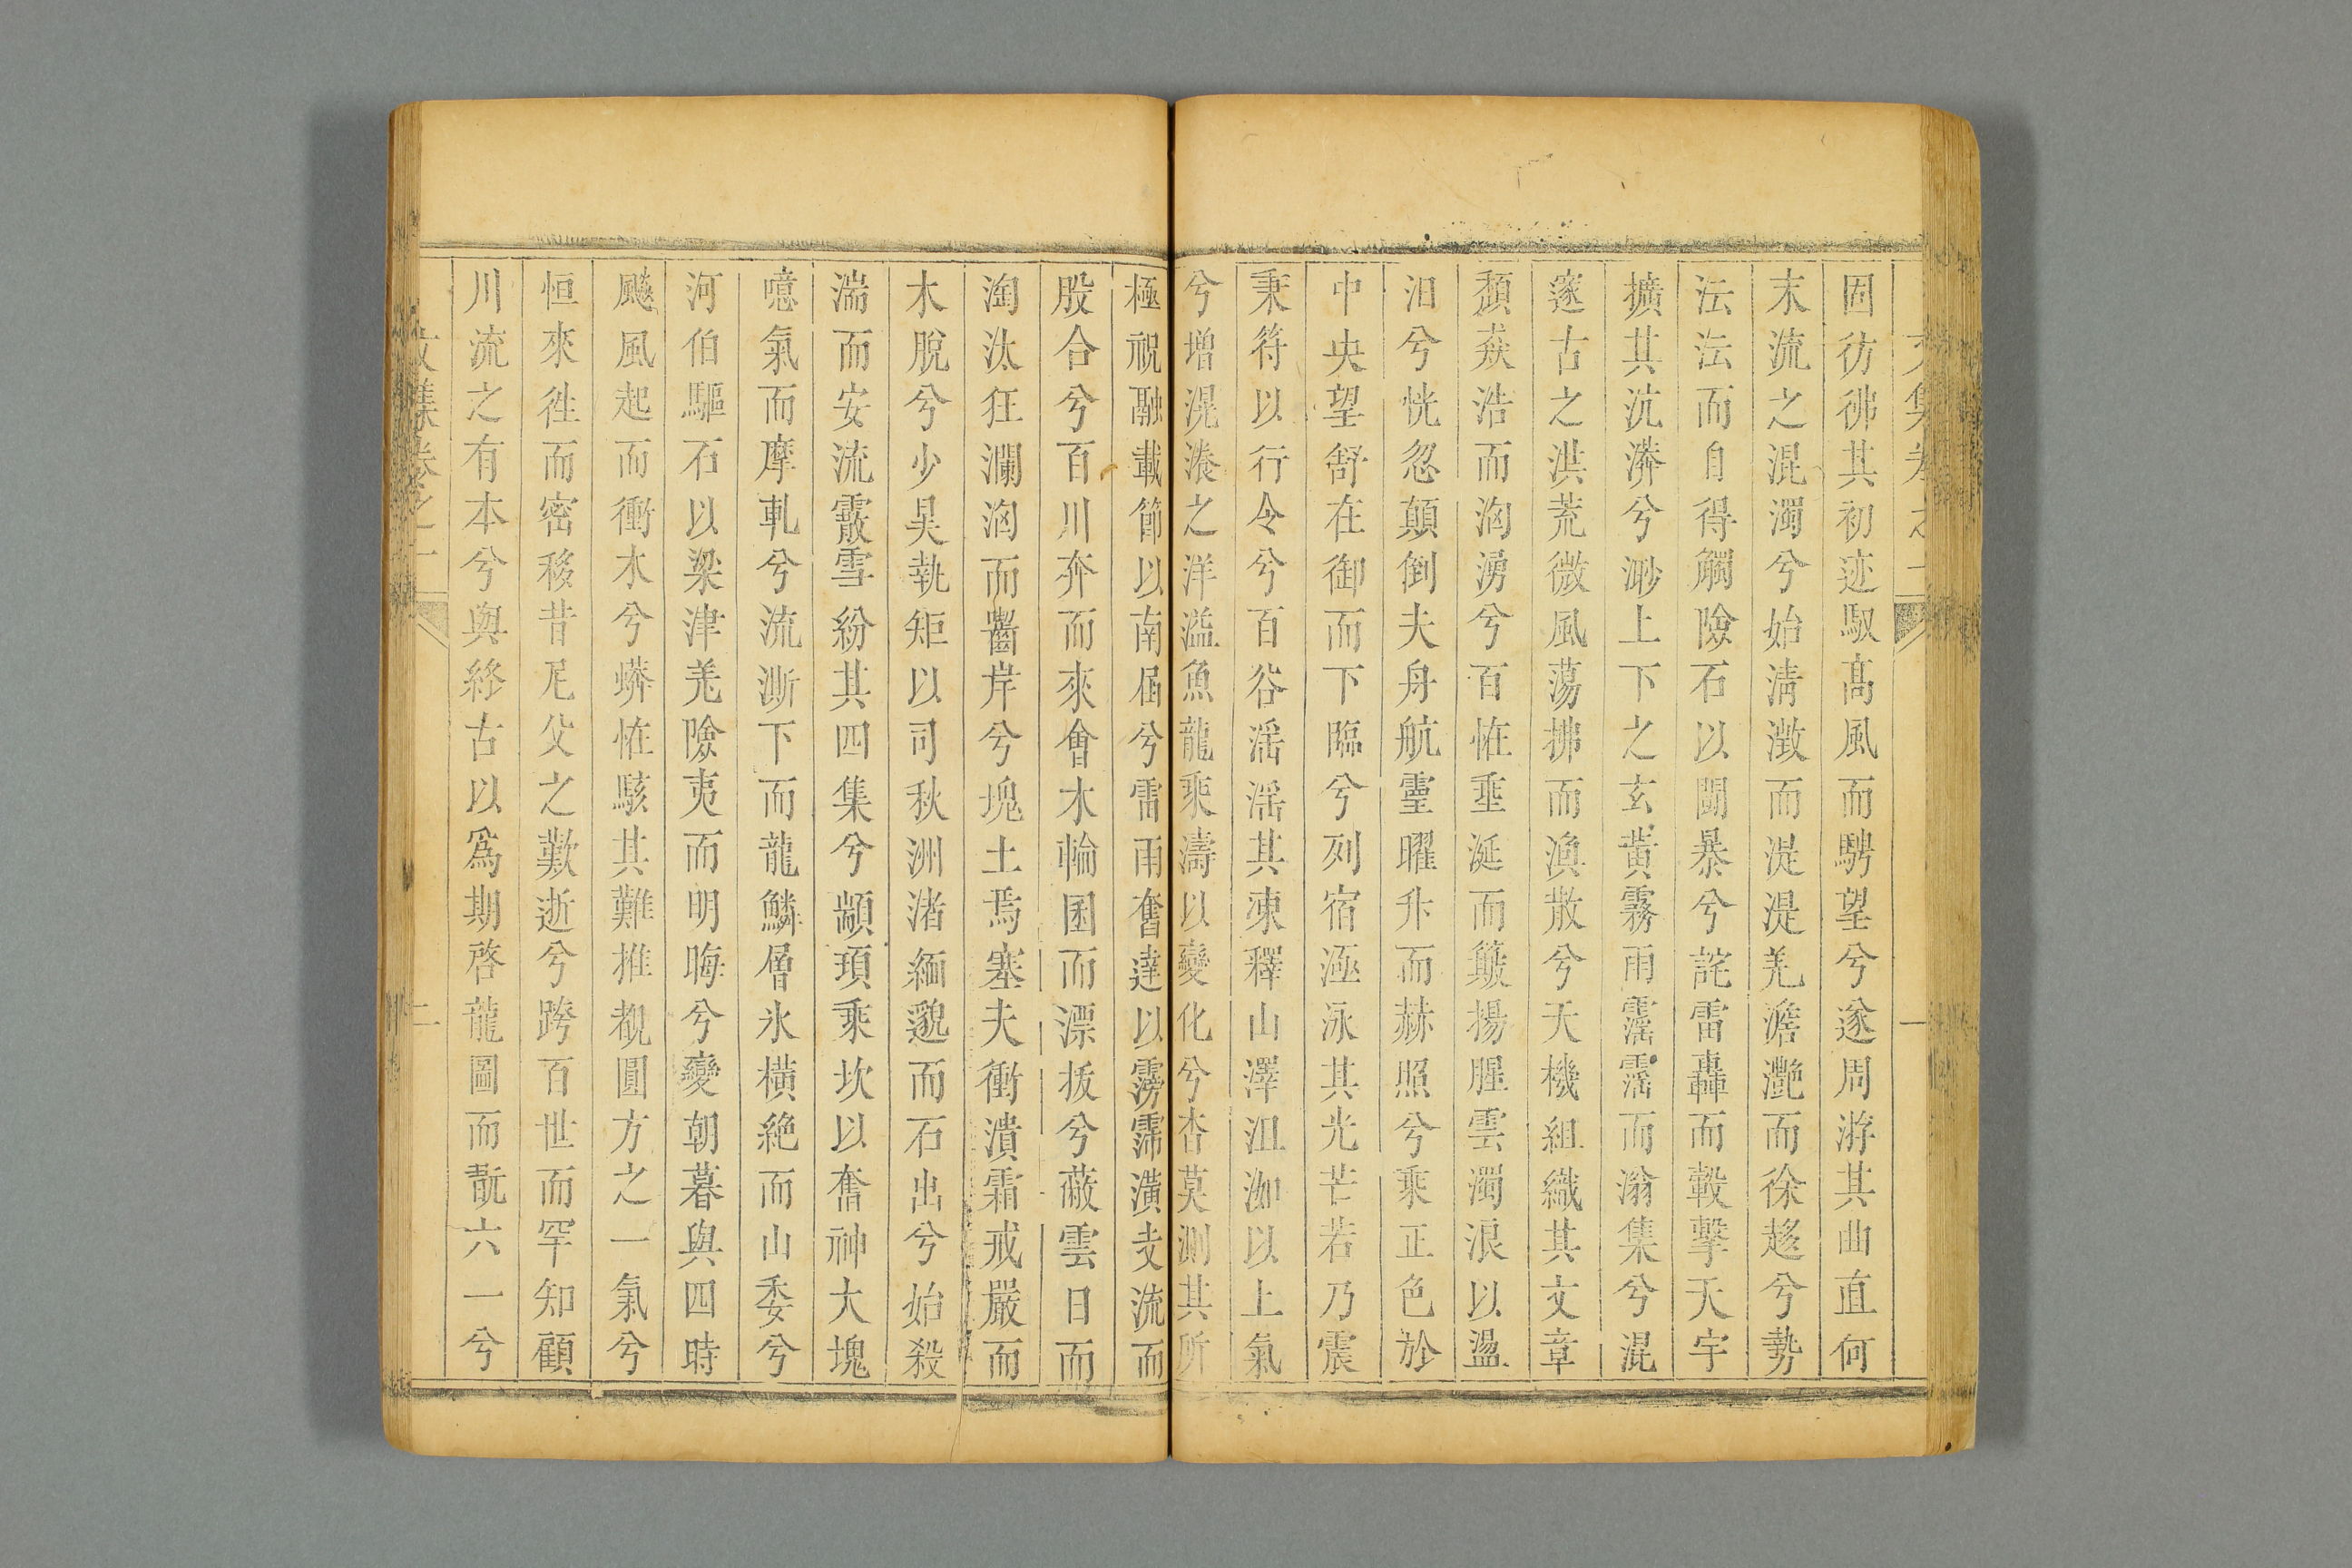 固彷彿其初迹馭高風而騁望兮遂周游其曲直何
末流之混濁兮始淸澂而湜湜羌澹灔而徐趍兮勢
沄沄而自得觸險石以鬪暴兮詫雷轟而轂擊天宇
擴其沆漭兮渺上下之玄黃霧雨霪霪而滃集兮混
邃古之洪荒微風蕩拂而渙散兮天機組織其文章
頹猋浩而洶湧兮百怪垂涎而簸揚腥雲濁浪以盪
汨兮恍忽顛倒夫舟航靈曜升而赫照兮乘正色於
中央望舒在御而下臨兮列宿涵泳其光芒若乃震
秉符以行令兮百谷滛滛其凍釋山澤沮洳以上氣
兮增滉瀁之洋溢魚龍乘濤以變化兮杳莫測其所
極祝融載節以南屆兮雷雨奮達以霶霈潢支流而
股合兮百川奔而來會木輪囷而漂拔兮蔽雲日而
淘汰狂瀾洶而齧岸兮塊土焉塞夫衝潰霜戒嚴而
木脫兮少昊執矩以司秋洲渚緬邈而石出兮始殺
湍而安流霰雪紛其四集兮顓頊乘坎以奮神大塊
噫氣而摩軋兮流澌下而龍鱗層氷橫絶而山委兮
河伯驅石以梁津羌險夷而明晦兮變朝暮與四時
飈風起而衝水兮蠎怪駭其難推覩圓方之一氣兮
恒來徃而密移昔尼父之歎逝兮跨百世而罕知顧
川流之有本兮與終古以爲期啓龍圖而翫六一兮
文集卷之一
二